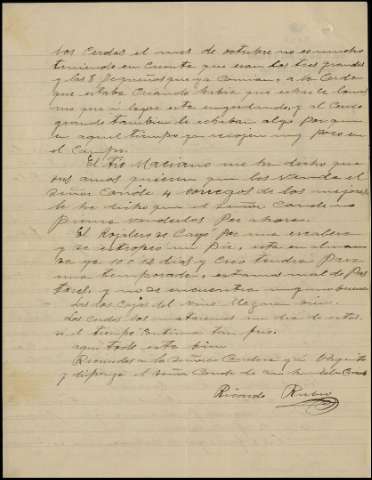 los cerdos el mes de octubre no es mucho
teniendo en cuenta que eran los tres grandes
y los 8 pequeños que ya comian, a la cerda
que estaba criando habia que echarle
no que si logre esta engordando, y al cerdo
grande tambien le echaban algo por que
en aquel tiempo ya recojen muy poco en
el campo.
El tio Mariano me ha dicho que
sus amos quieren que los venda el
Señor Conde 4 conegos de los mejores
le he dicho que el Señor Conde no
piensa venderlos por ahora.
El Rojalero se cayó por una escalera
y se estropeo un pie, esta en
ya 10 o 12 dias y creo tendrá para
una temporada, estamos mal de pas
tores, y no se encuentra ninguno bueno
Las dos cajas del vino llegaron bien.
Los cerdos los mataremos un dia de estos
si el tiempo continua tan frio.
aqui todo esta bien
Recuerdos a la Señora Condesa y
y disponga el Señor Conde de
Ricardo Rubio